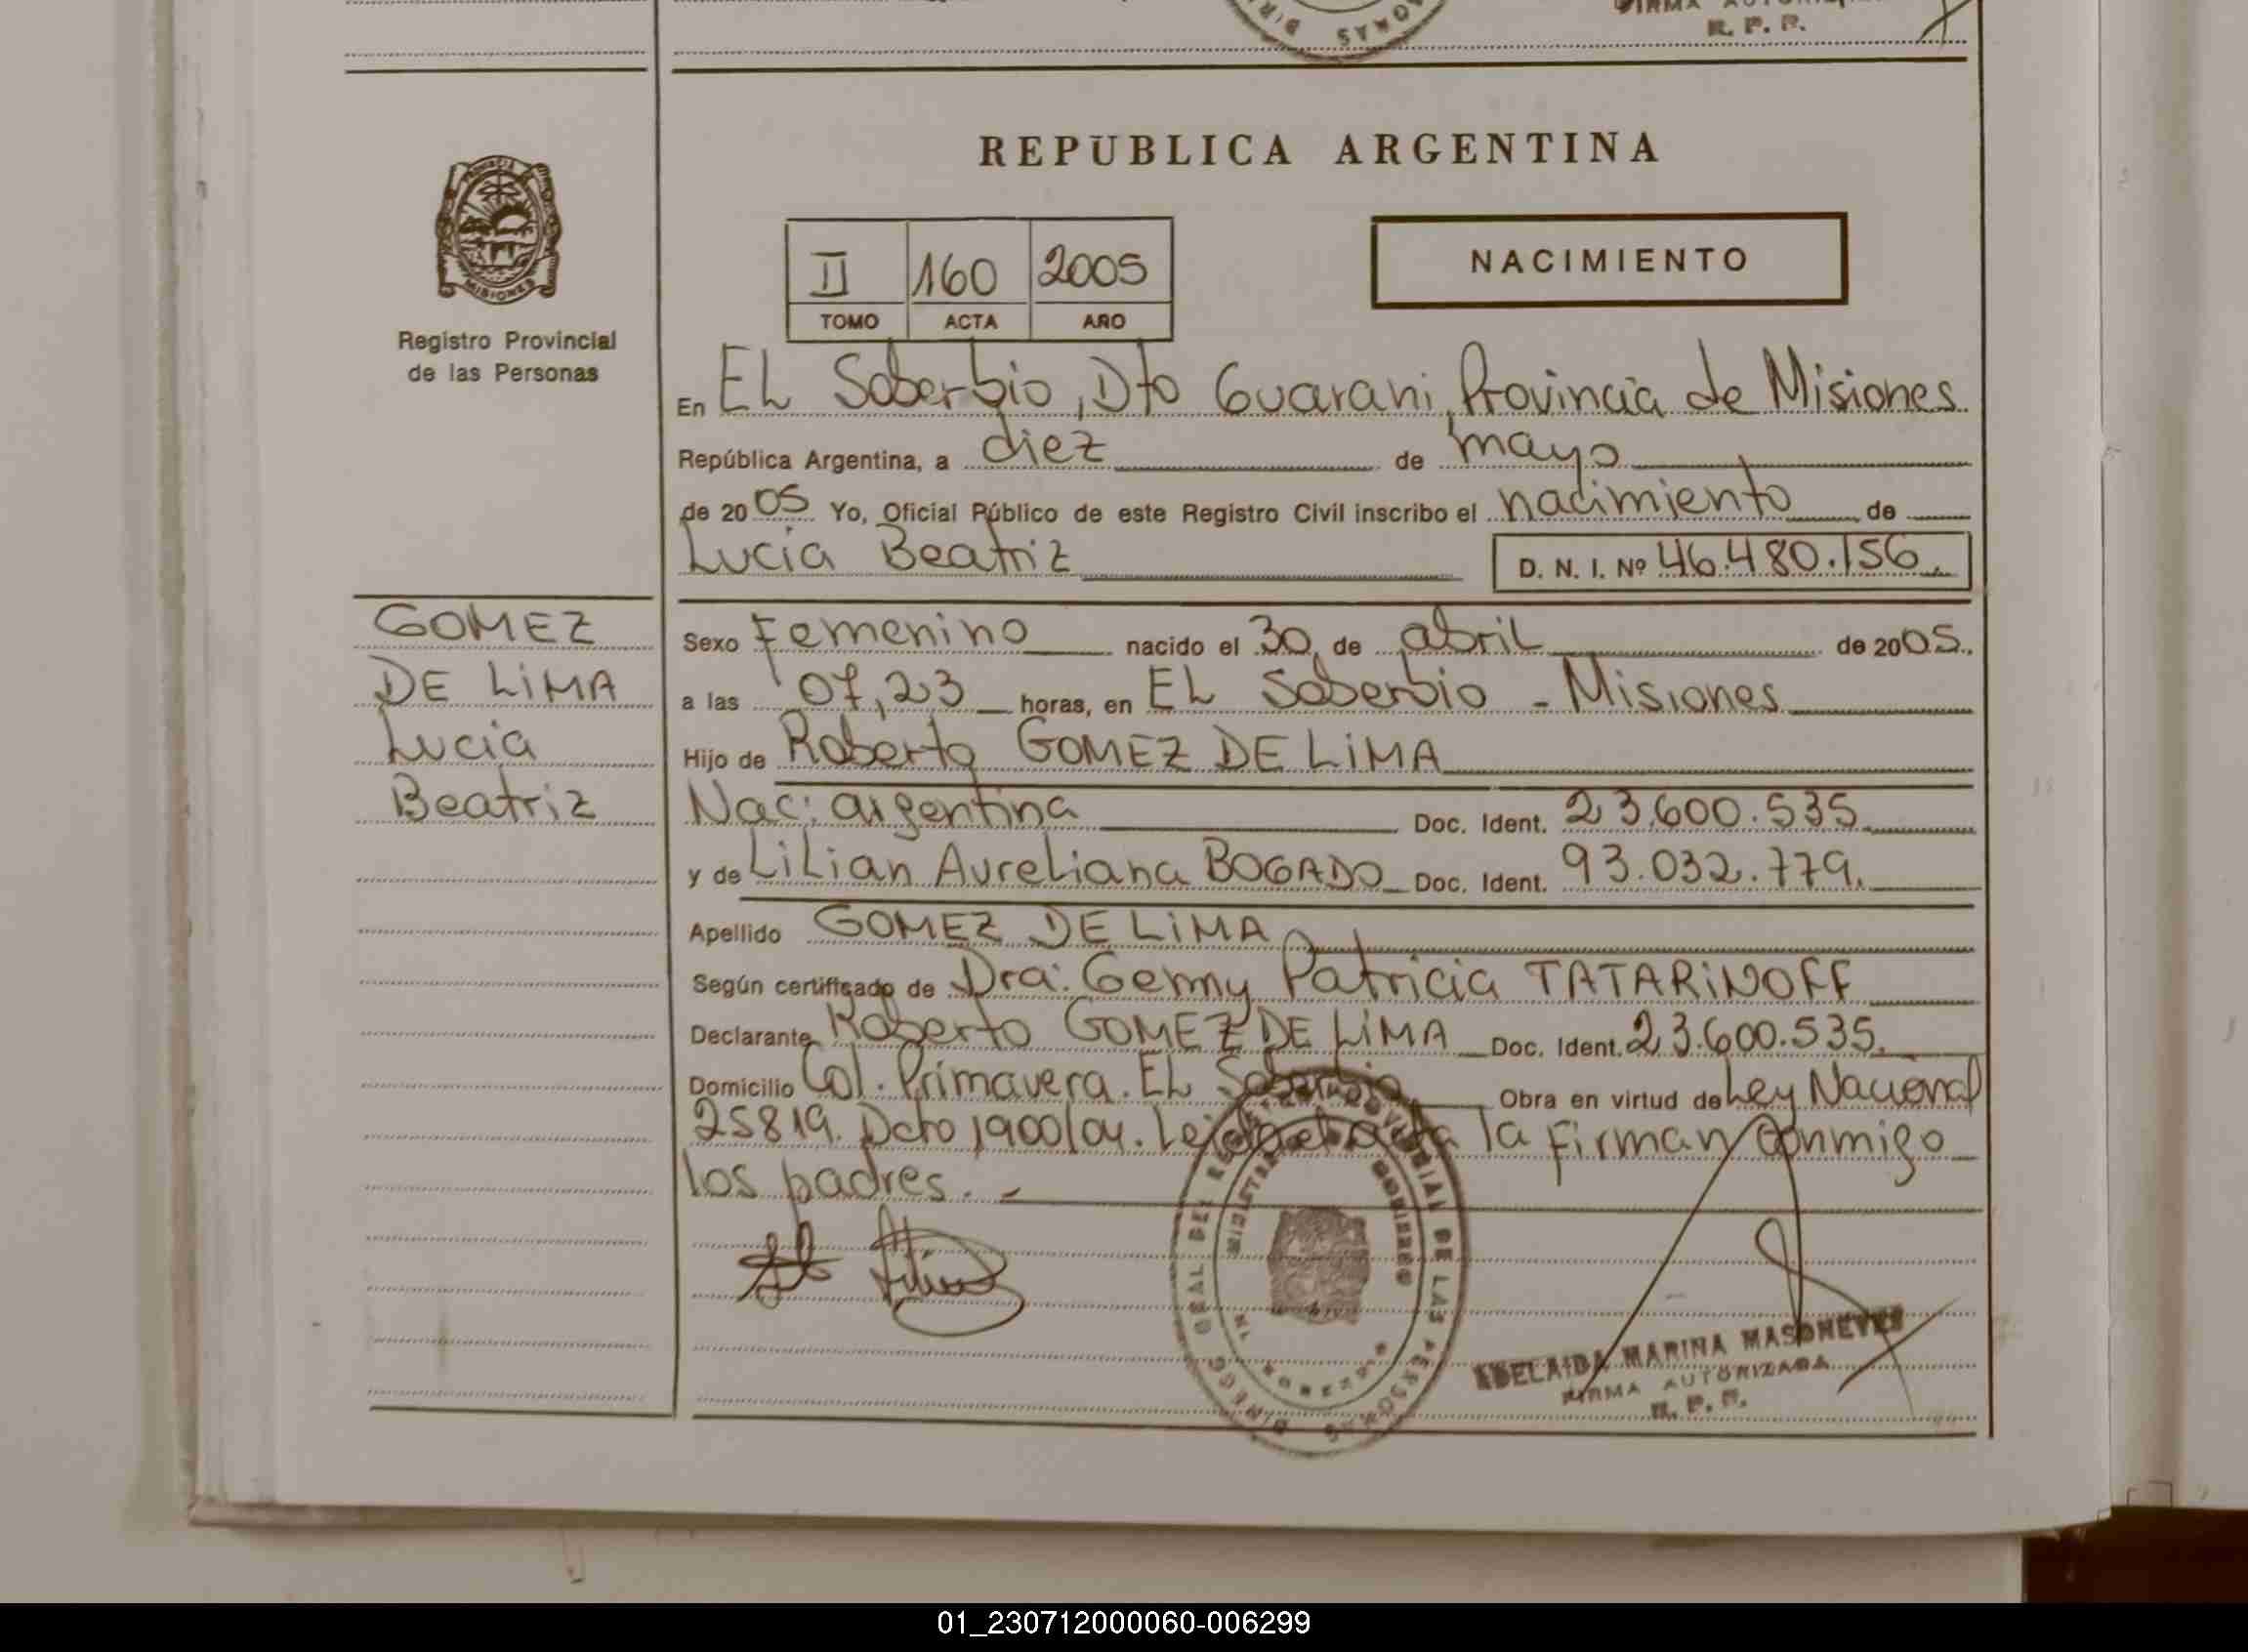 R. P. P.
REPUBLICA ARGENTINA
PROVINCIA
MISIONES
Registro Provincial
de las Personas
II 160 2005
TOMO ACTA AÑO
NACIMIENTO
En EL Soberbio, Dto Guarani, Provincia de Misiones
República Argentina, a diez de mayo
de 2005 Yo, Oficial Público de este Registro Civil inscribo el nacimiento de
Lucia Beatriz D. N. I. Nº 46.480.156.
GOMEZ
DE LiMA
Lucia
Beatriz
Sexo Femenino nacido el 30 de abril de 2005.
a las 07,23 horas, en EL Soberbio - Misiones
Hijo de Roberto GOMEZ DE LiMA
Nac: argentina Doc. Ident. 23.600.535
y de LiLian AureLiana BOGADO Doc. Ident. 93.032.779.
Apellido GOMEZ DE LiMA
Según certificado de Dra: Genny Patricia TATARiNOFF
Declarante Roberto GOMEZ DE LiMA Doc. Ident. 23.600.535.
Domicilio Col. Primavera. EL Soberbio Obra en virtud de Ley Nacional
25819. Dcto 1900/04. Leida el acta la firman conmigo
los padres. -
ADELAIDA MARINA
FIRMA AUTORIZADA
R. P. P.
01_230712000060-006299